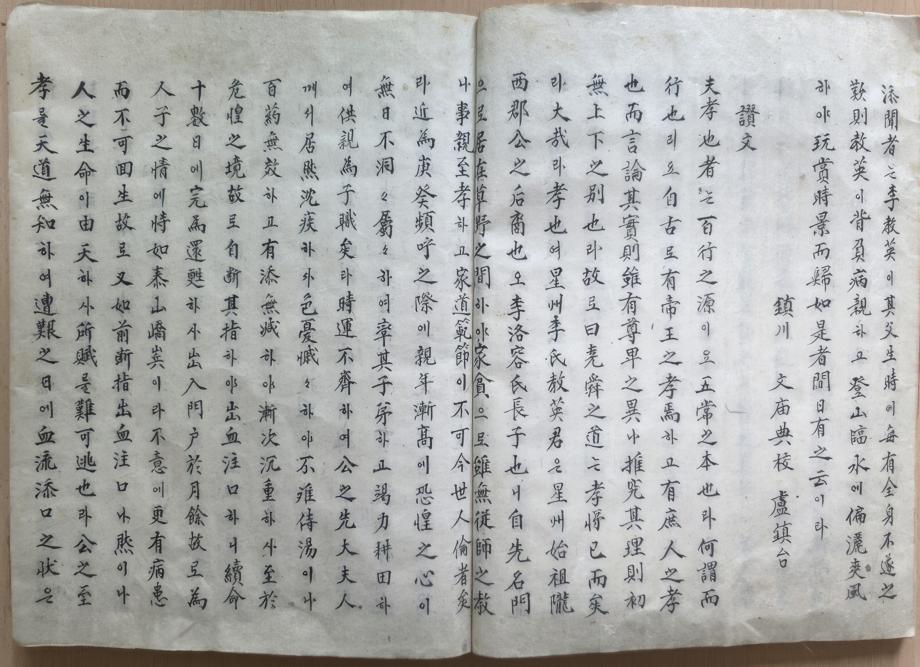 添聞者는李敎英이其父生時에每有全身不遂之
歎則敎英이背負病親하고登山臨水에偏灑爽風
하야玩賞時景而歸如是者間日有之云이라
鎭川 文庙典校 盧鎭台
讚文
夫孝也者는百行之源이오五常之本也라何謂而
行也리오自古로有帝王之孝焉하고有庶人之孝
也而言論其實則雖有尊卑之異나推究其理則初
無上下之別也라故로曰堯舜之道는孝悌已而矣
라大哉라孝也여星州李氏敎英君은星州始祖隴
西郡公之后裔也오李洛容氏長子也니自先名門
으로居在草野之間하야家貧으로雖無從師之敎
나事親至孝하고家道範節이不可今世人倫者矣
라近為庚癸頻呼之際에親年漸高에恐惶之心이
無日不洞々屬々하여率其子弟하고竭力耕田하
여供親為子職矣라時運不齊하여公之先大夫人
께서居然沈疾하사色憂慽々하야不离侍湯이나
百葯無效하고有添無减하야漸次沉重하사至於
危惶之境故로自斷其指하야出血注口하니續命
十數日에完為還甦하사出入門戶於月餘故로為
人子之情에恃如泰山嶠岦이라不意에更有病患
而不可回生故로又如前斷指出血注口나然이나
人之生命이由天하사所賦를難可逃也라公之至
孝를天道無知하여遭艱之日에血流添口之狀은